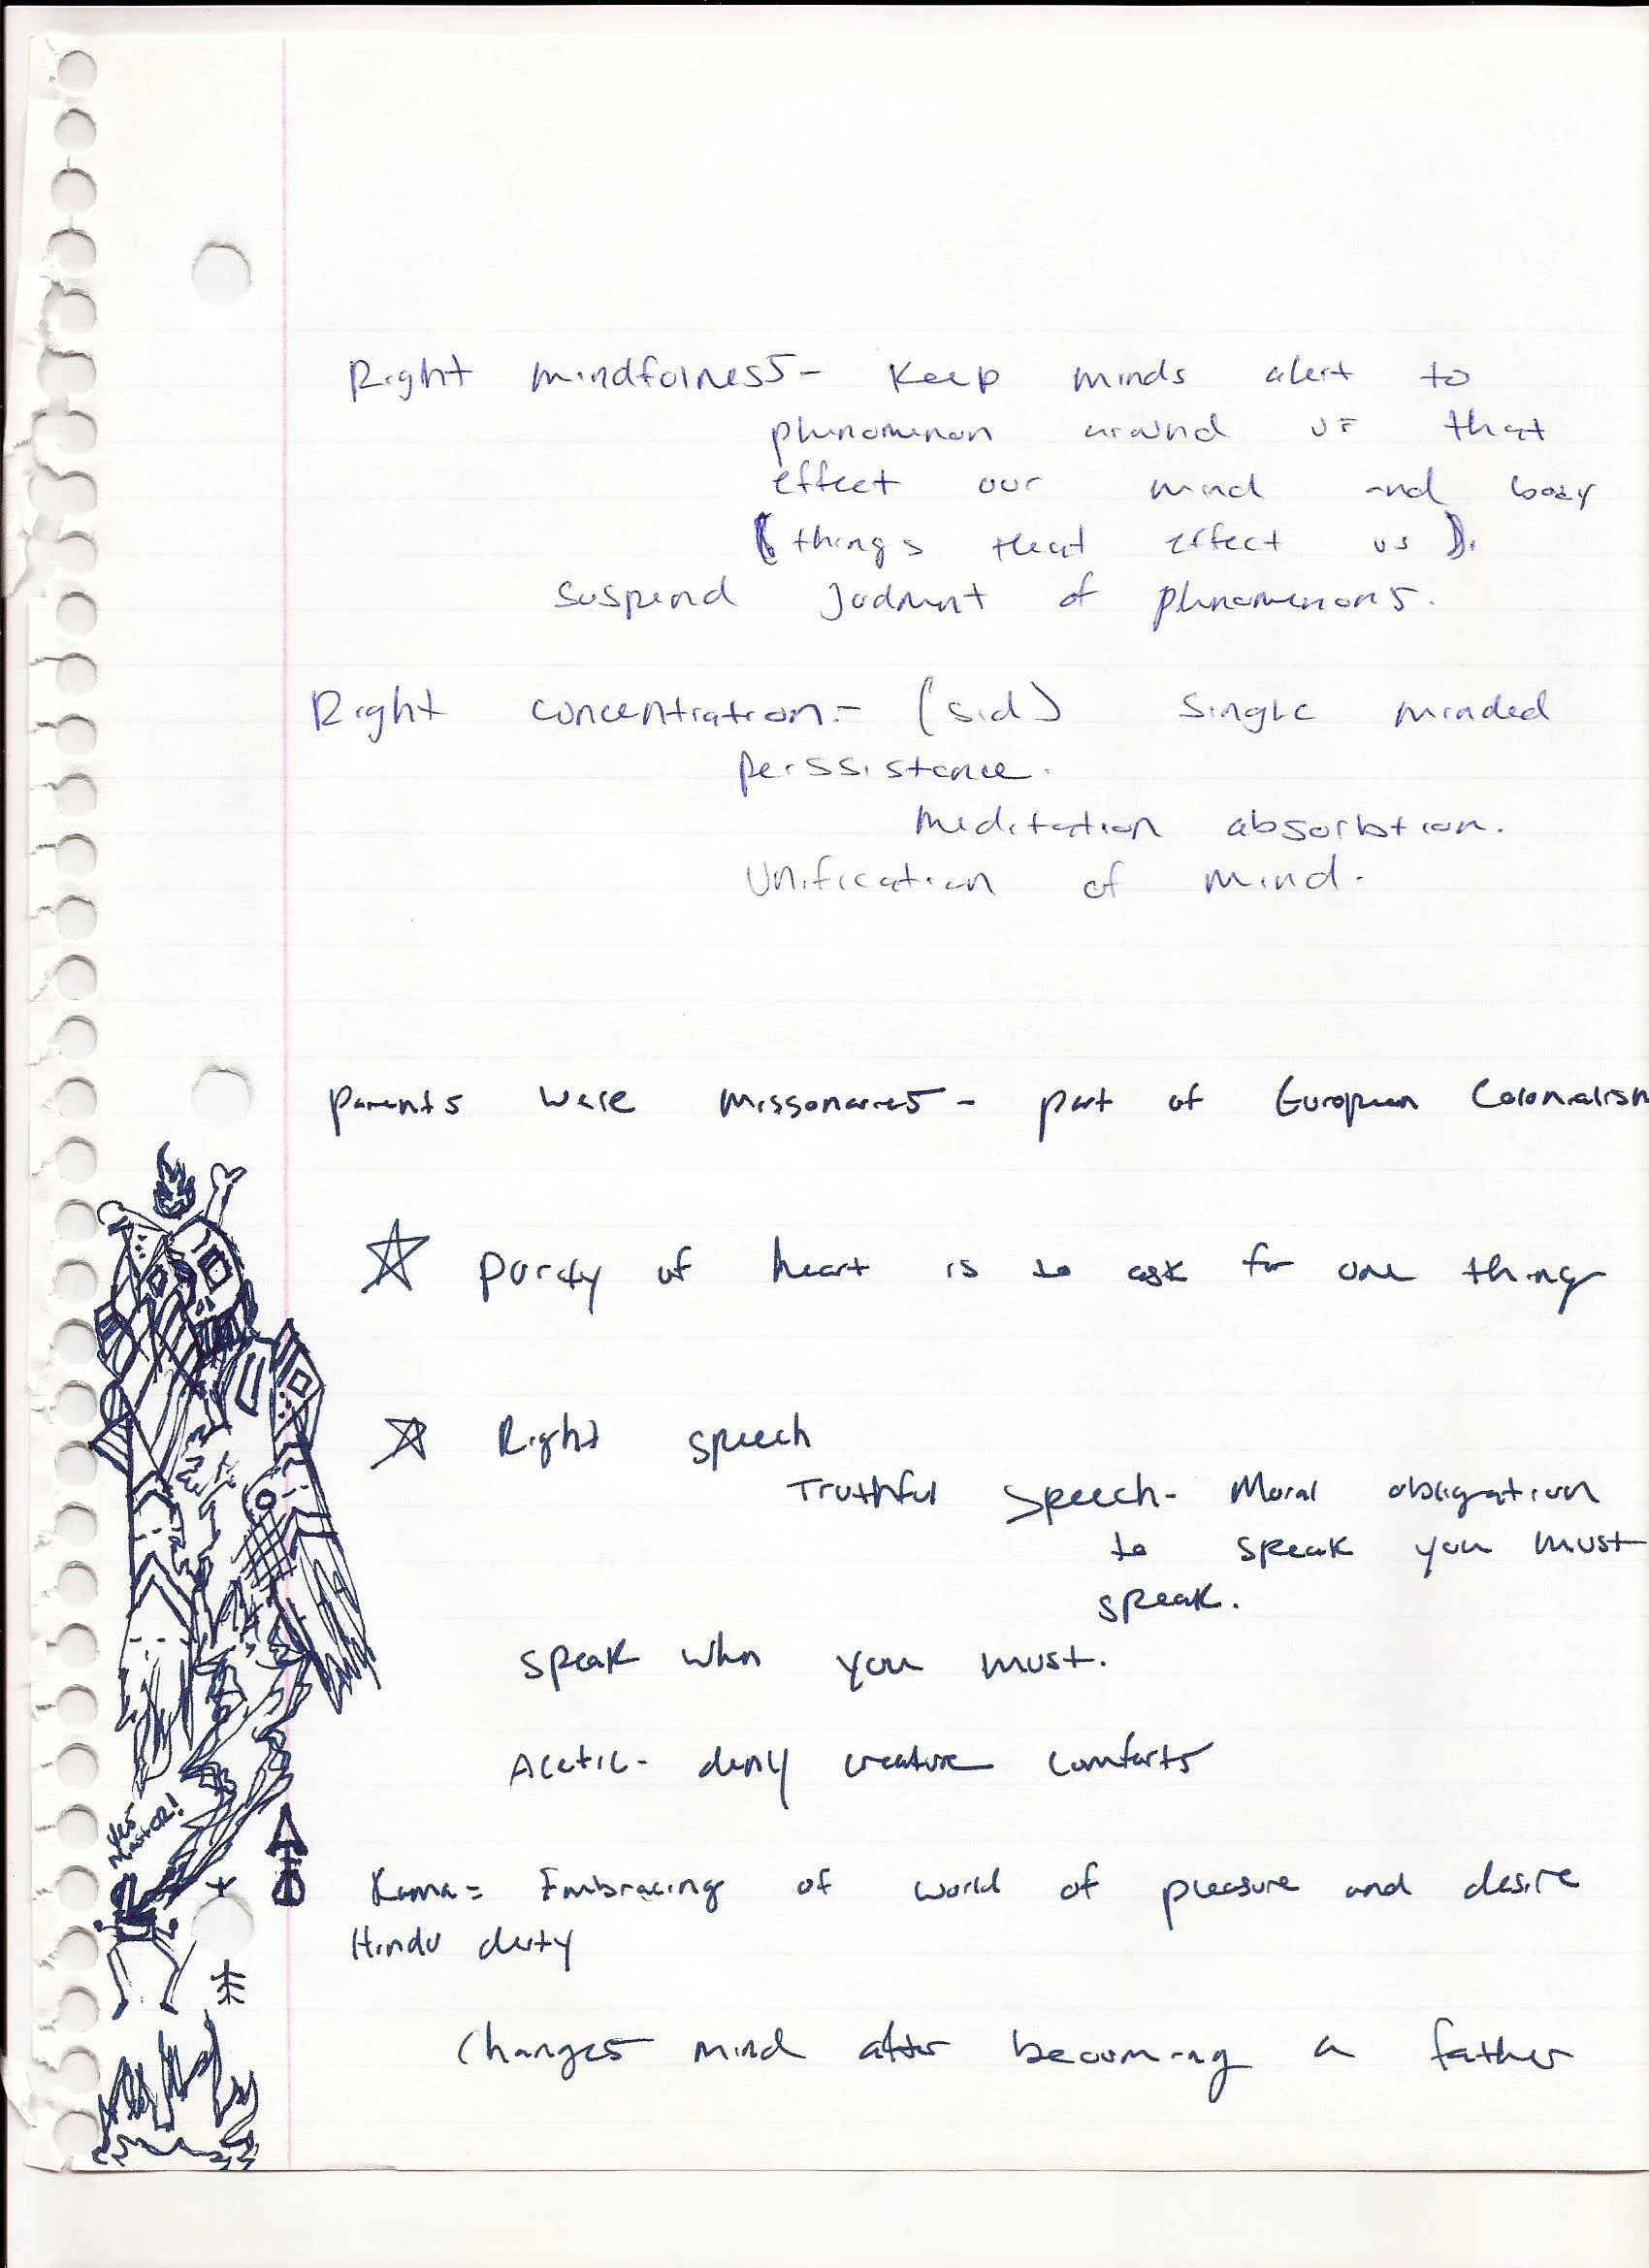 Right mindfulness- Keep minds alert to
phenomenon around us that
effect our mind and body
(things that effect us).
suspend Judment of phenomenons.
Right concentration:- (sid) single minded
perssistance.
meditation absorbtion.
Unification of mind.
parents were missonaries- part of European Colonialism
☆ purity of heart is to ask for one thing
☆ Right speech
Truthful speech- Moral obligation
to speak you must
speak.
speak when you must.
Acetic- deny creature comforts
Yes
Master!
Kama= Embracing of world of pleasure and desire
Hindu duty
Changes mind after becoming a father